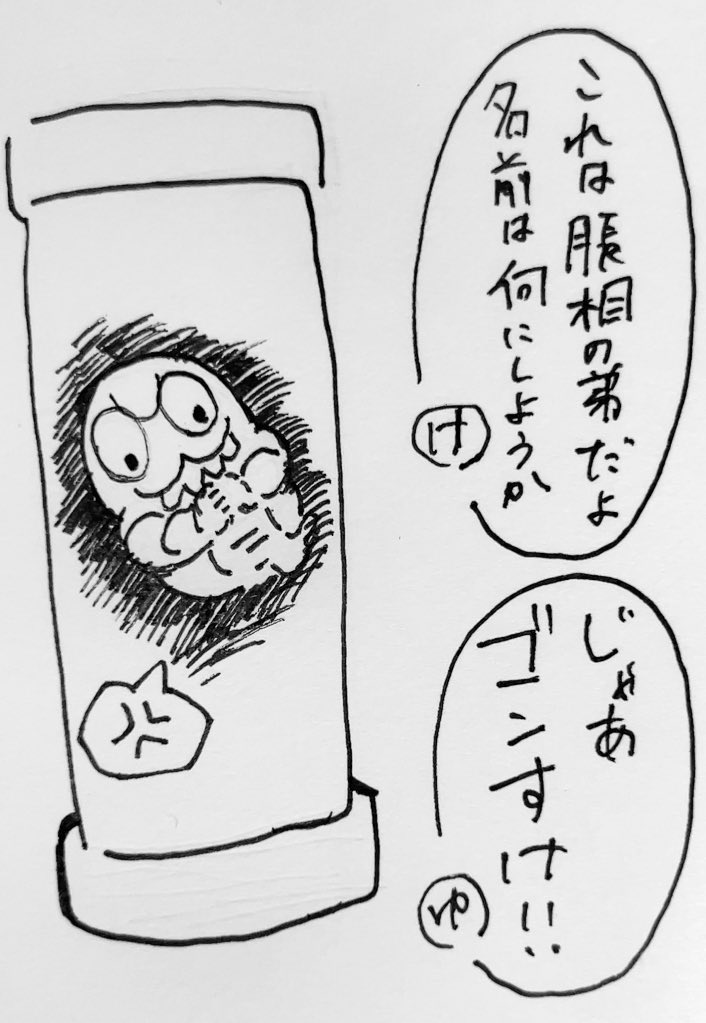 これは脹相の弟だよ
名前は何にしようか
け
じゃあ
ゴンすけ!!
ゆ